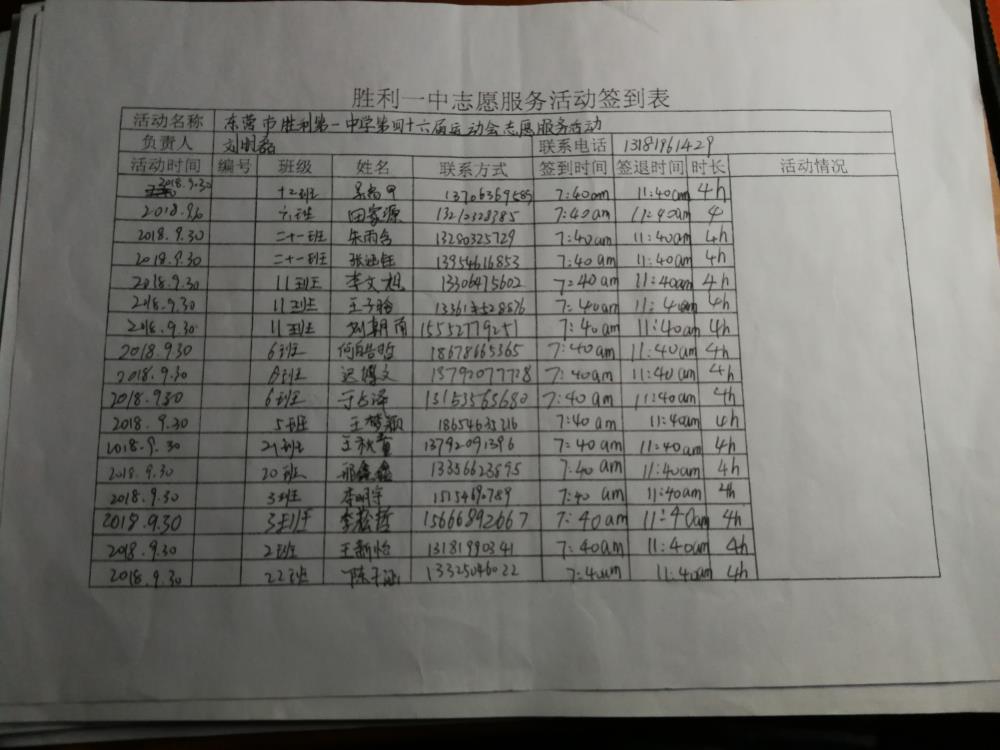 胜利一中志愿服务活动签到表
活动名称 东营市胜利第一中学第四十六届运动会志愿服务活动
负责人 联系电话 13181961429
活动时间 编号 班级 姓名 联系方式 签到时间 签退时间 时长 活动情况
2018.9.30 十二班 7:40am 11:40am 4h
田家源 13212328385 7:40am 11:40am 4
2018.9.30 二十一班 朱雨含 13280325729 7:40am 11:40am 4h
2018.9.30 二十一班 13954616853 7:40am 11:40am 4h
2018.9.30 11班 李文旭 13306475602 7:40am 11:40am 4h
2018.9.30 11班 王子晗 7:40am 11:40am 4h
2018.9.30 11班 刘朝雨 15552779251 7:40am 11:40am 4h
2018.9.30 6班 何皓哲 18678665365 7:40am 11:40am 4h
2018.9.30 迟博文 13792077728 7:40am 11:40am 4h
2018.9.30 6班 于占泽 13153565680 7:40am 11:40am 4h
2018.9.30 5班 王梦颖 18654635216 7:40am 11:40am 4h
2018.9.30 王秋童 13792091396 7:40am 11:40am 4h
2018.9.30 20班 邢鑫鑫 13356623895 7:40am 11:40am 4h
2018.9.30 3班 李明宇 7:40am 11:40am 4h
2018.9.30 3班 李菘哲 15666892667 7:40am 11:40am 4h
2018.9.30 2班 王新怡 13181990341 7:40am 11:40am 4h
2018.9.30 22班 陈子涵 13325046022 7:40am 11:40am 4h